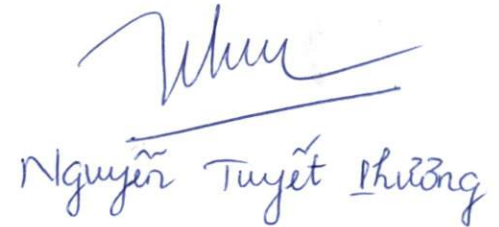 Nguyễn Tuyết Phương